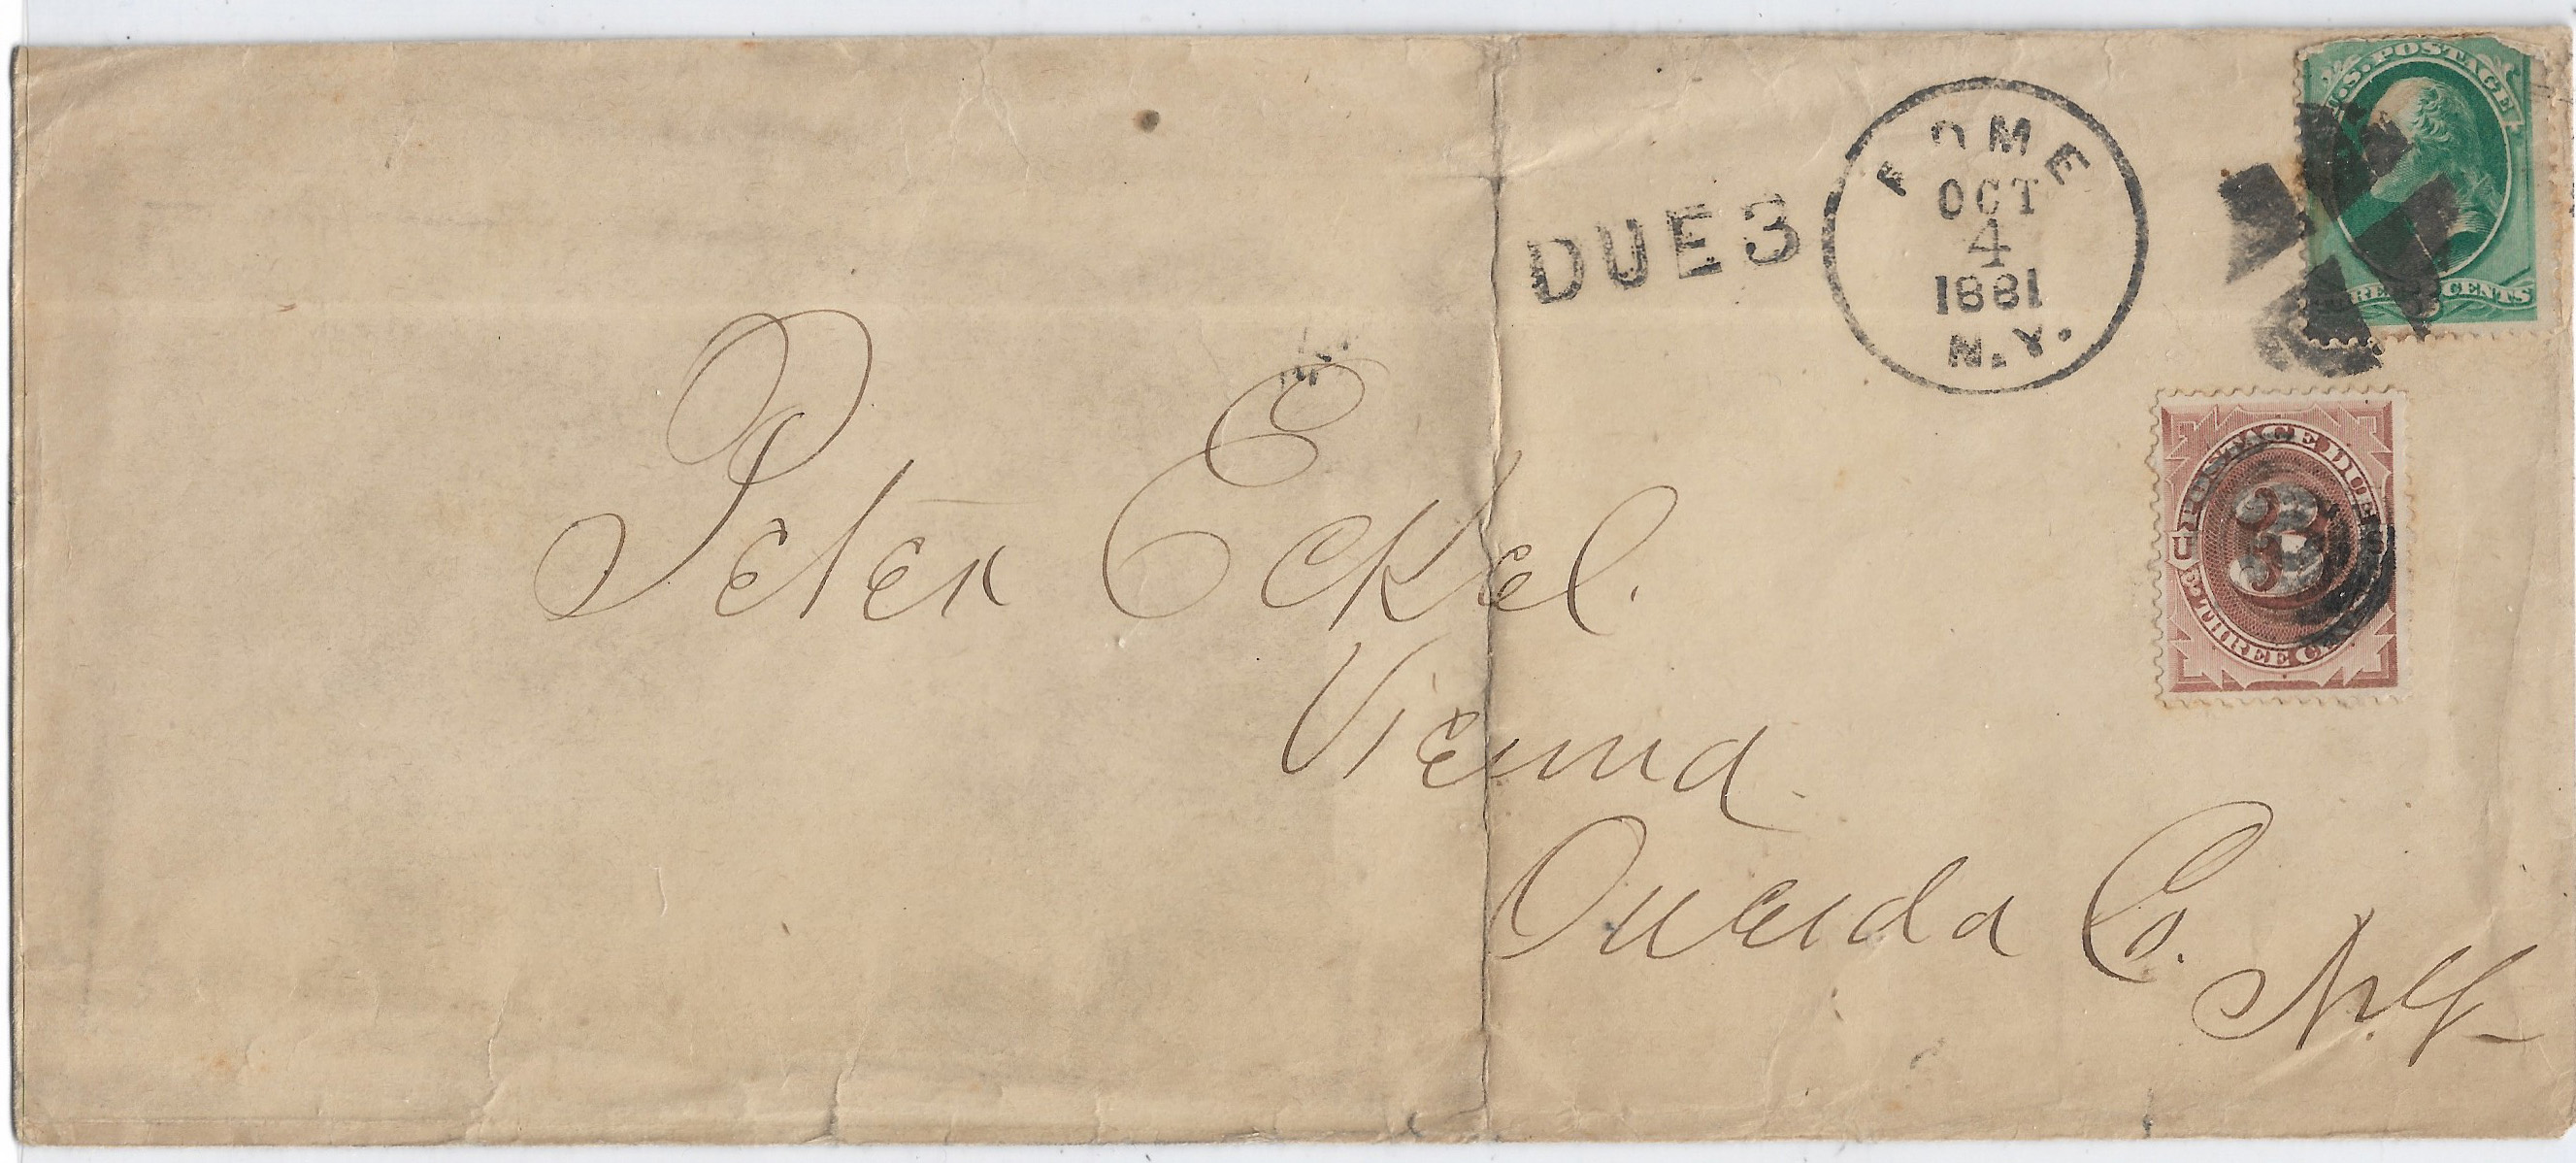 U.S. POSTAGE
THREE CENTS
DUE 3
ROME
OCT
4
1881
N.Y.
POSTAGE DUE
3
U S
THREE CENTS
Peter Eckel.
Vienna
Oneida Co.
N.Y.